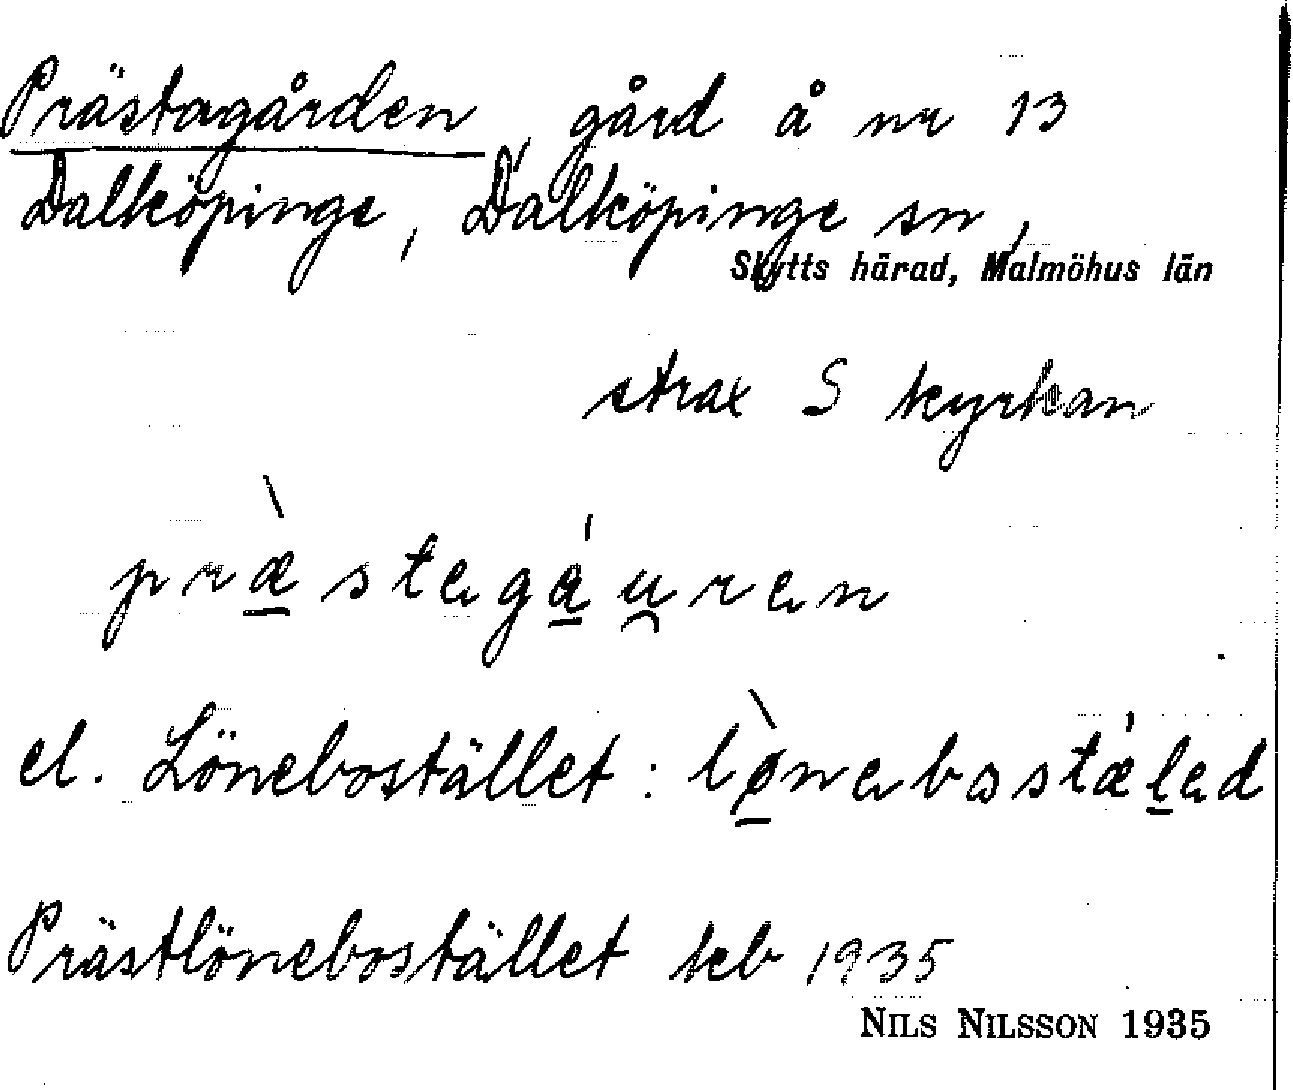 Prästagården, gård å nr 13
Dalköpinge, Dalköpinge sn,
Skytts härad, Malmöhus län
strax S kyrkan
præ̀stagáu̯ran
el. Lönebostället : lø̀nabostǽlad
Prästlönebostället kb 1935
NILS NILSSON 1935